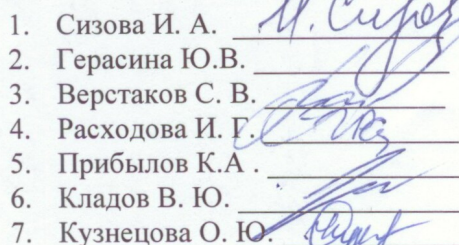 1. Сизова И. А.
2. Герасина Ю.В.
3. Верстаков С. В.
4. Расходова И. Г.
5. Прибылов К.А .
6. Кладов В. Ю.
7. Кузнецова О. Ю.